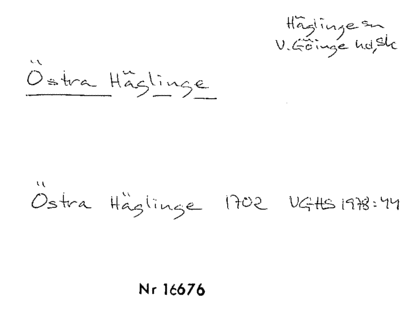 Häglinge sn
V. Göinge hd, Sk
Östra Häglinge
Östra Häglinge 1702 VGHS 1978:44
Nr 16676